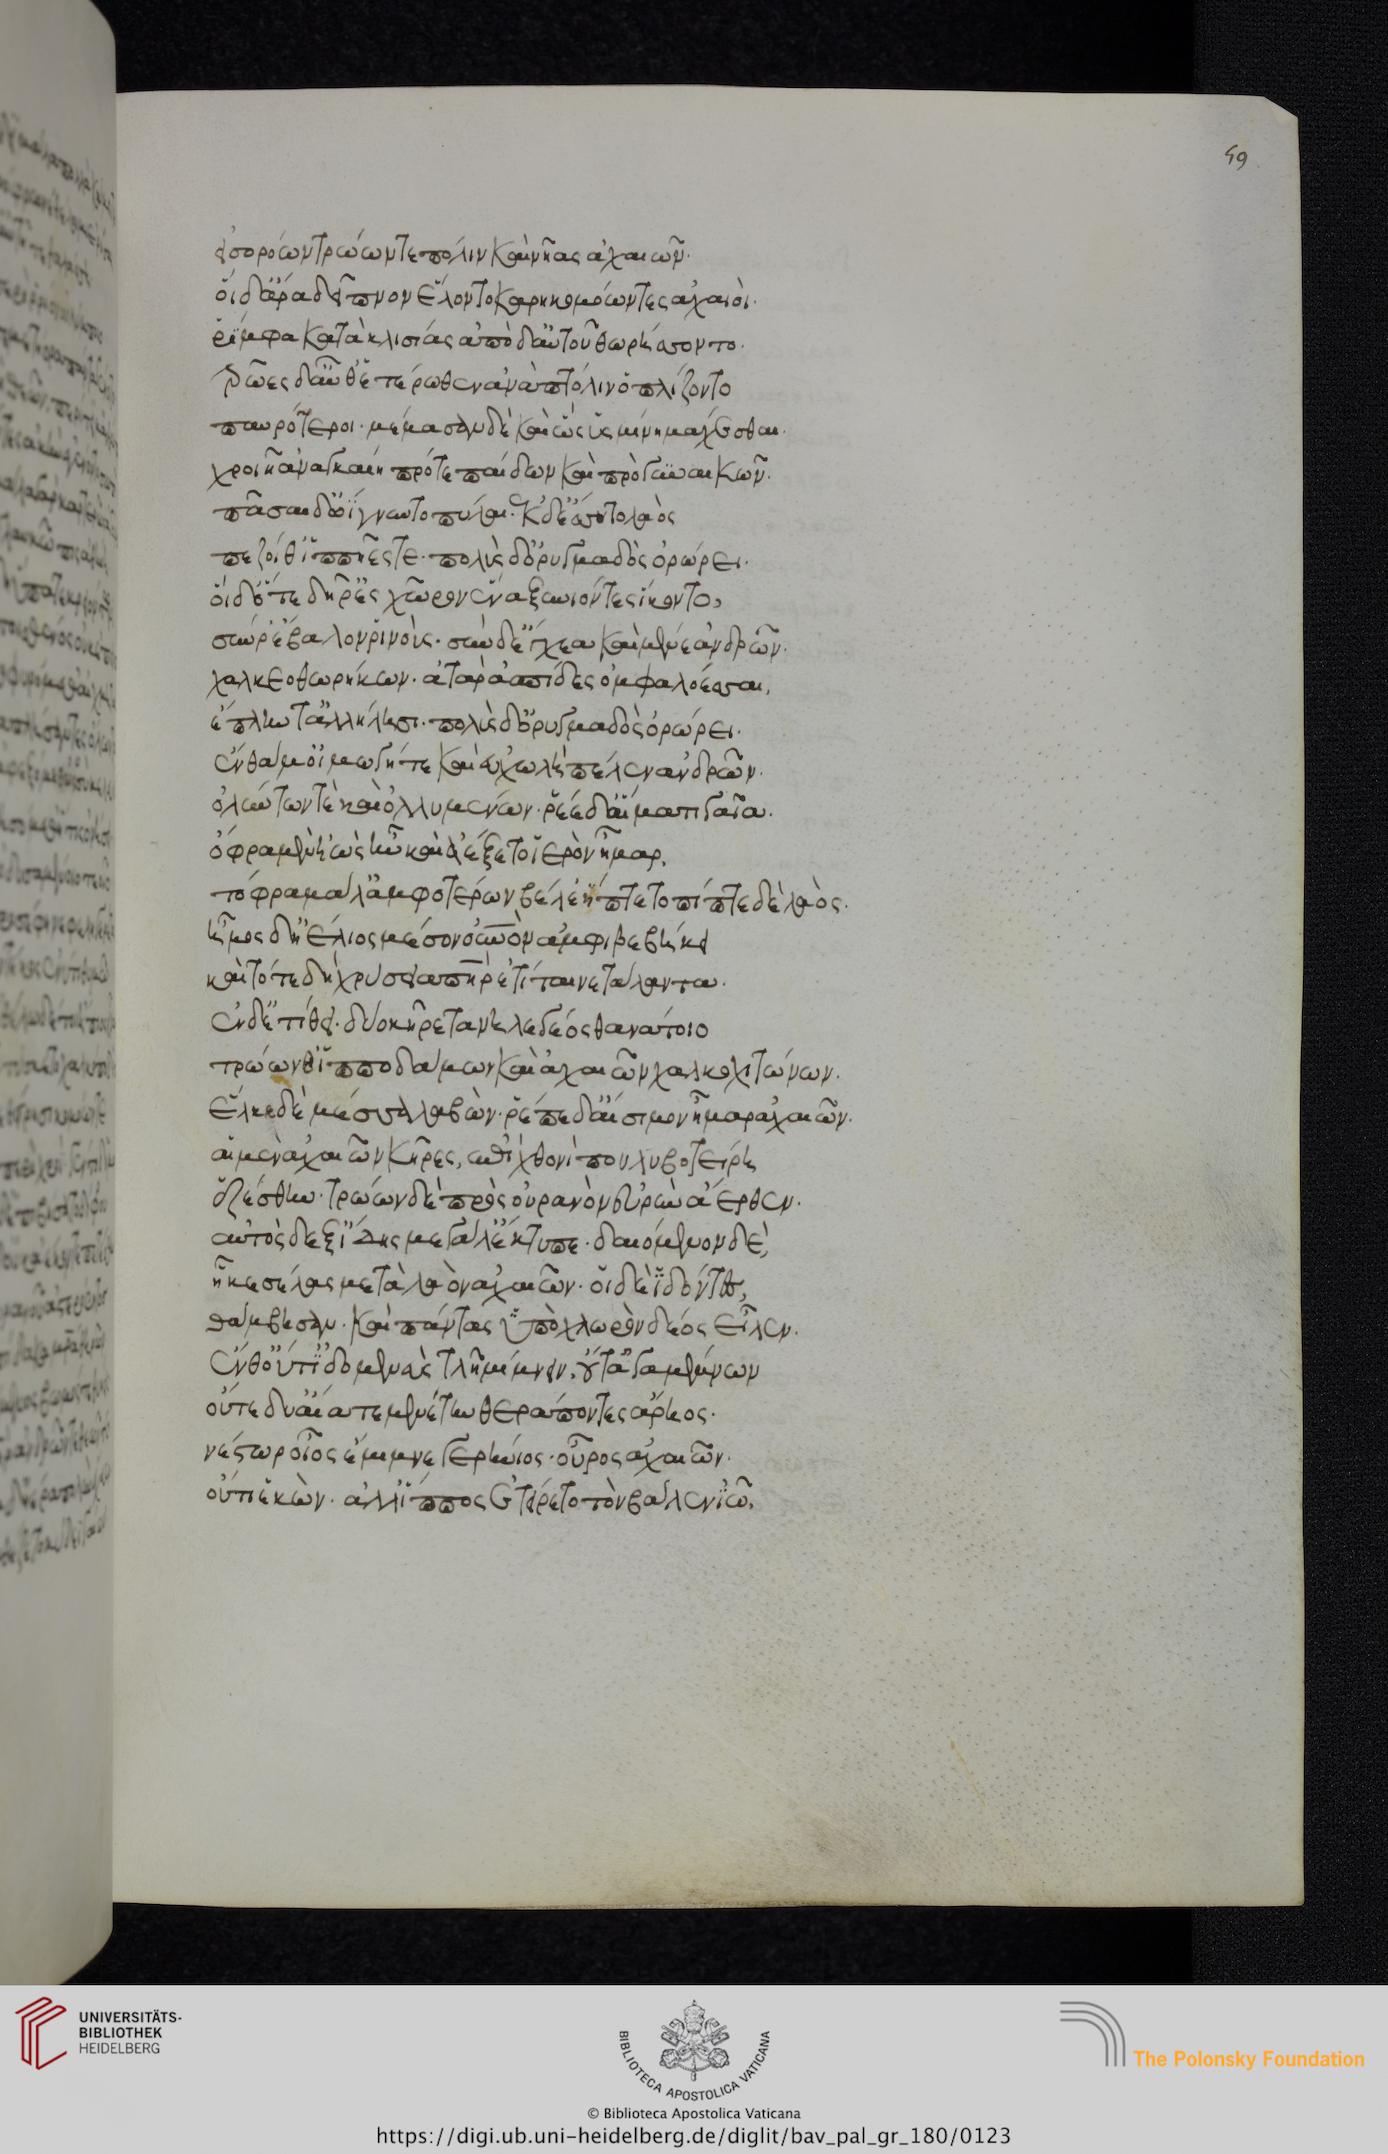 59
εἰσορόων τρώων τε πόλιν καὶ νῆας ἀχαιῶν·
οἱ δ' ἄρα δεῖπνον ἕλοντο καρηκομόωντες ἀχαιοὶ·
ῥίμφα κατὰ κλισίας ἀπὸ δ' αὐτοῦ θωρήσσοντο·
τρῶες δ' αὖθ' ἑτέρωθεν ἀνὰ πτόλιν ὁπλίζοντο
παυρότεροι· μέμασαν δὲ καὶ ὣς ὑσμῖνι μάχεσθαι·
χρειῇ ἀναγκαίῃ πρό τε παίδων καὶ πρὸ γυναικῶν·
πᾶσαι δ' ὠΐγνυντο πύλαι· ἐκ δ' ἔσσυτο λαὸς
πεζοί θ' ἱππῆές τε· πολὺς δ' ὀρυμαγδὸς ὀρώρει·
οἱ δ' ὅτε δή ῥ' ἐς χῶρον ἕνα ξυνιόντες ἵκοντο,
σύν ῥ' ἔβαλον ῥινοὺς· σὺν δ' ἔγχεα καὶ μένε' ἀνδρῶν·
χαλκεοθωρήκων· ἀτὰρ ἀσπίδες ὀμφαλόεσσαι,
ἔπληντ' ἀλλήλῃσι· πολὺς δ' ὀρυμαγδὸς ὀρώρει·
ἔνθα δ' ἅμ' οἰμωγή τε καὶ εὐχωλὴ πέλεν ἀνδρῶν·
ὀλλύντων τὲ καὶ ὀλλυμένων· ῥέε δ' αἵματι γαῖα·
ὄφρα μὲν ἠὼς ἦν καὶ ἀέξετο ἱερὸν ἦμαρ,
τόφρα μάλ' ἀμφοτέρων βέλε' ἥπτετο πίπτε δὲ λαὸς·
ἦμος δ' ἠέλιος μέσον οὐρανὸν ἀμφιβεβήκει
καὶ τότε δὴ χρύσεια πατὴρ ἐτίταινε τάλαντα·
ἐν δ' ἐτίθει· δύο κῆρε τανηλεγέος θανάτοιο
τρώων θ' ἱπποδάμων καὶ ἀχαιῶν χαλκοχιτώνων·
ἕλκε δὲ μέσσα λαβὼν· ῥέπε δ' αἴσιμον ἦμαρ ἀχαιῶν·
αἱ μὲν ἀχαιῶν κῆρες, ἐπὶ χθονὶ πουλυβοτείρῃ
ἑζέσθην· τρώων δὲ πρὸς οὐρανὸν εὐρὺν ἄερθεν·
αὐτὸς δ' ἐξ ἴδης μεγάλ' ἔκτυπε· δαιόμενον δὲ,
ἧκε σέλας μετὰ λαὸν ἀχαιῶν· οἱ δὲ ἰδόντες,
θάμβησαν· καὶ πάντας ὑπὸ χλωρὸν δέος εἷλεν·
ἔνθ' οὔτ' ἰδομενεὺς τλῆ μίμνειν, οὔτ' ἀγαμέμνων
οὔτε δύ' αἴαντε μενέτην θεράποντες ἄρηος·
νέστωρ οἶος ἔμιμνε γερήνιος· οὖρος ἀχαιῶν·
οὔτι ἑκὼν· ἀλλ' ἵππος ἐτείρετο τὸν βάλεν ἰῶ,
UNIVERSITÄTS-
BIBLIOTHEK
HEIDELBERG
BIBLIOTECA APOSTOLICA VATICANA
The Polonsky Foundation
© Biblioteca Apostolica Vaticana
https://digi.ub.uni-heidelberg.de/diglit/bav_pal_gr_180/0123